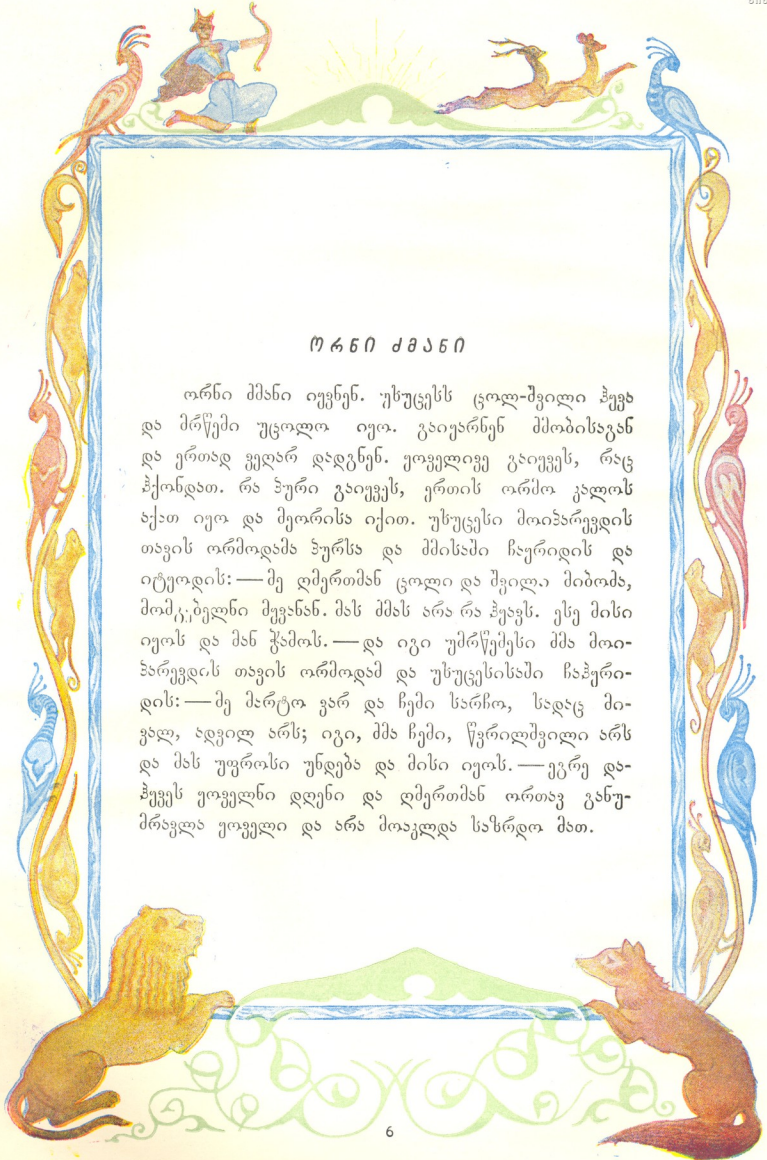 ორნი ძმანი
ორნი ძმანი იყვნენ. უხუცესს ცოლ-შვილი ჰყვა
და მრწემი უცოლო იყო. გაიყარნენ ძმობისაგან
და ერთად ვეღარ დადგნენ. ყოველივე გაიყვეს, რაც
ჰქონდათ. რა პური გაიყვეს, ერთის ორმო კალოს
აქათ იყო და მეორისა იქით. უხუცესი მოიპარევდის
თავის ორმოდამა პურსა და ძმისაში ჩაყრიდის და
იტყოდის: — მე ღმერთმან ცოლი და შვილი მიბოძა,
მომკიბელნი მყვანან. მას ძმას არა რა ჰყავს. ესე მისი
იყოს და მან ჭამოს. — და იგი უმრწემესი ძმა მოი-
პარევდის თავის ორმოდამ და უხუცესისაში ჩაჰყრი-
დის: — მე მარტო ვარ და ჩემი სარჩო, სადაც მი-
ვალ, ადვილ არს; იგი, ძმა ჩემი, წვრილშვილი არს
და მას უფროსი უნდება და მისი იყოს. — ეგრე და-
ჰყვეს ყოველნი დღენი და ღმერთმან ორთავ განუ-
მრავლა ყოველი და არა მოაკლდა საზრდო მათ.
6